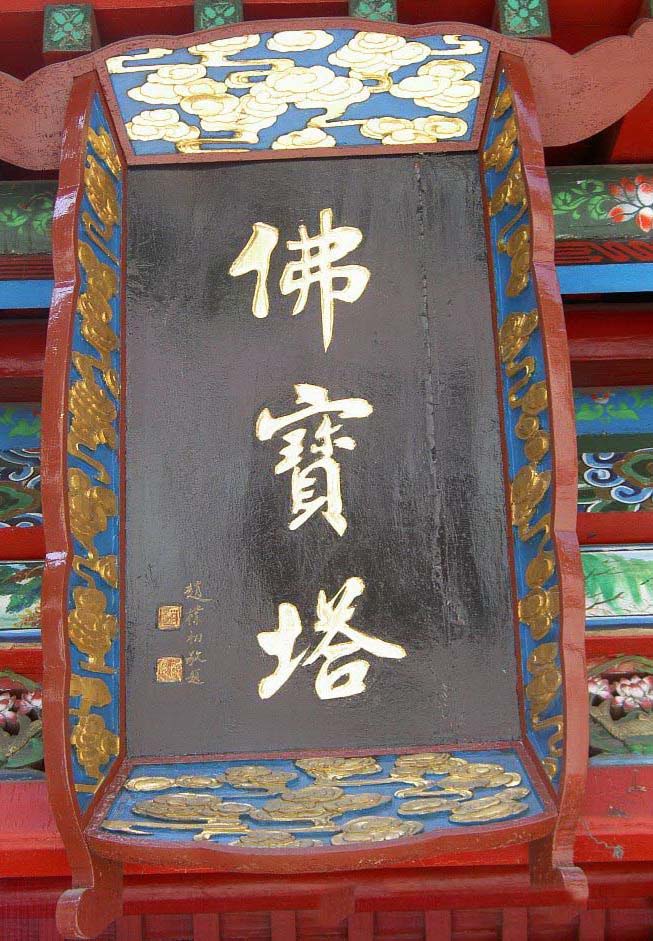 佛寶塔
趙樸初敬題